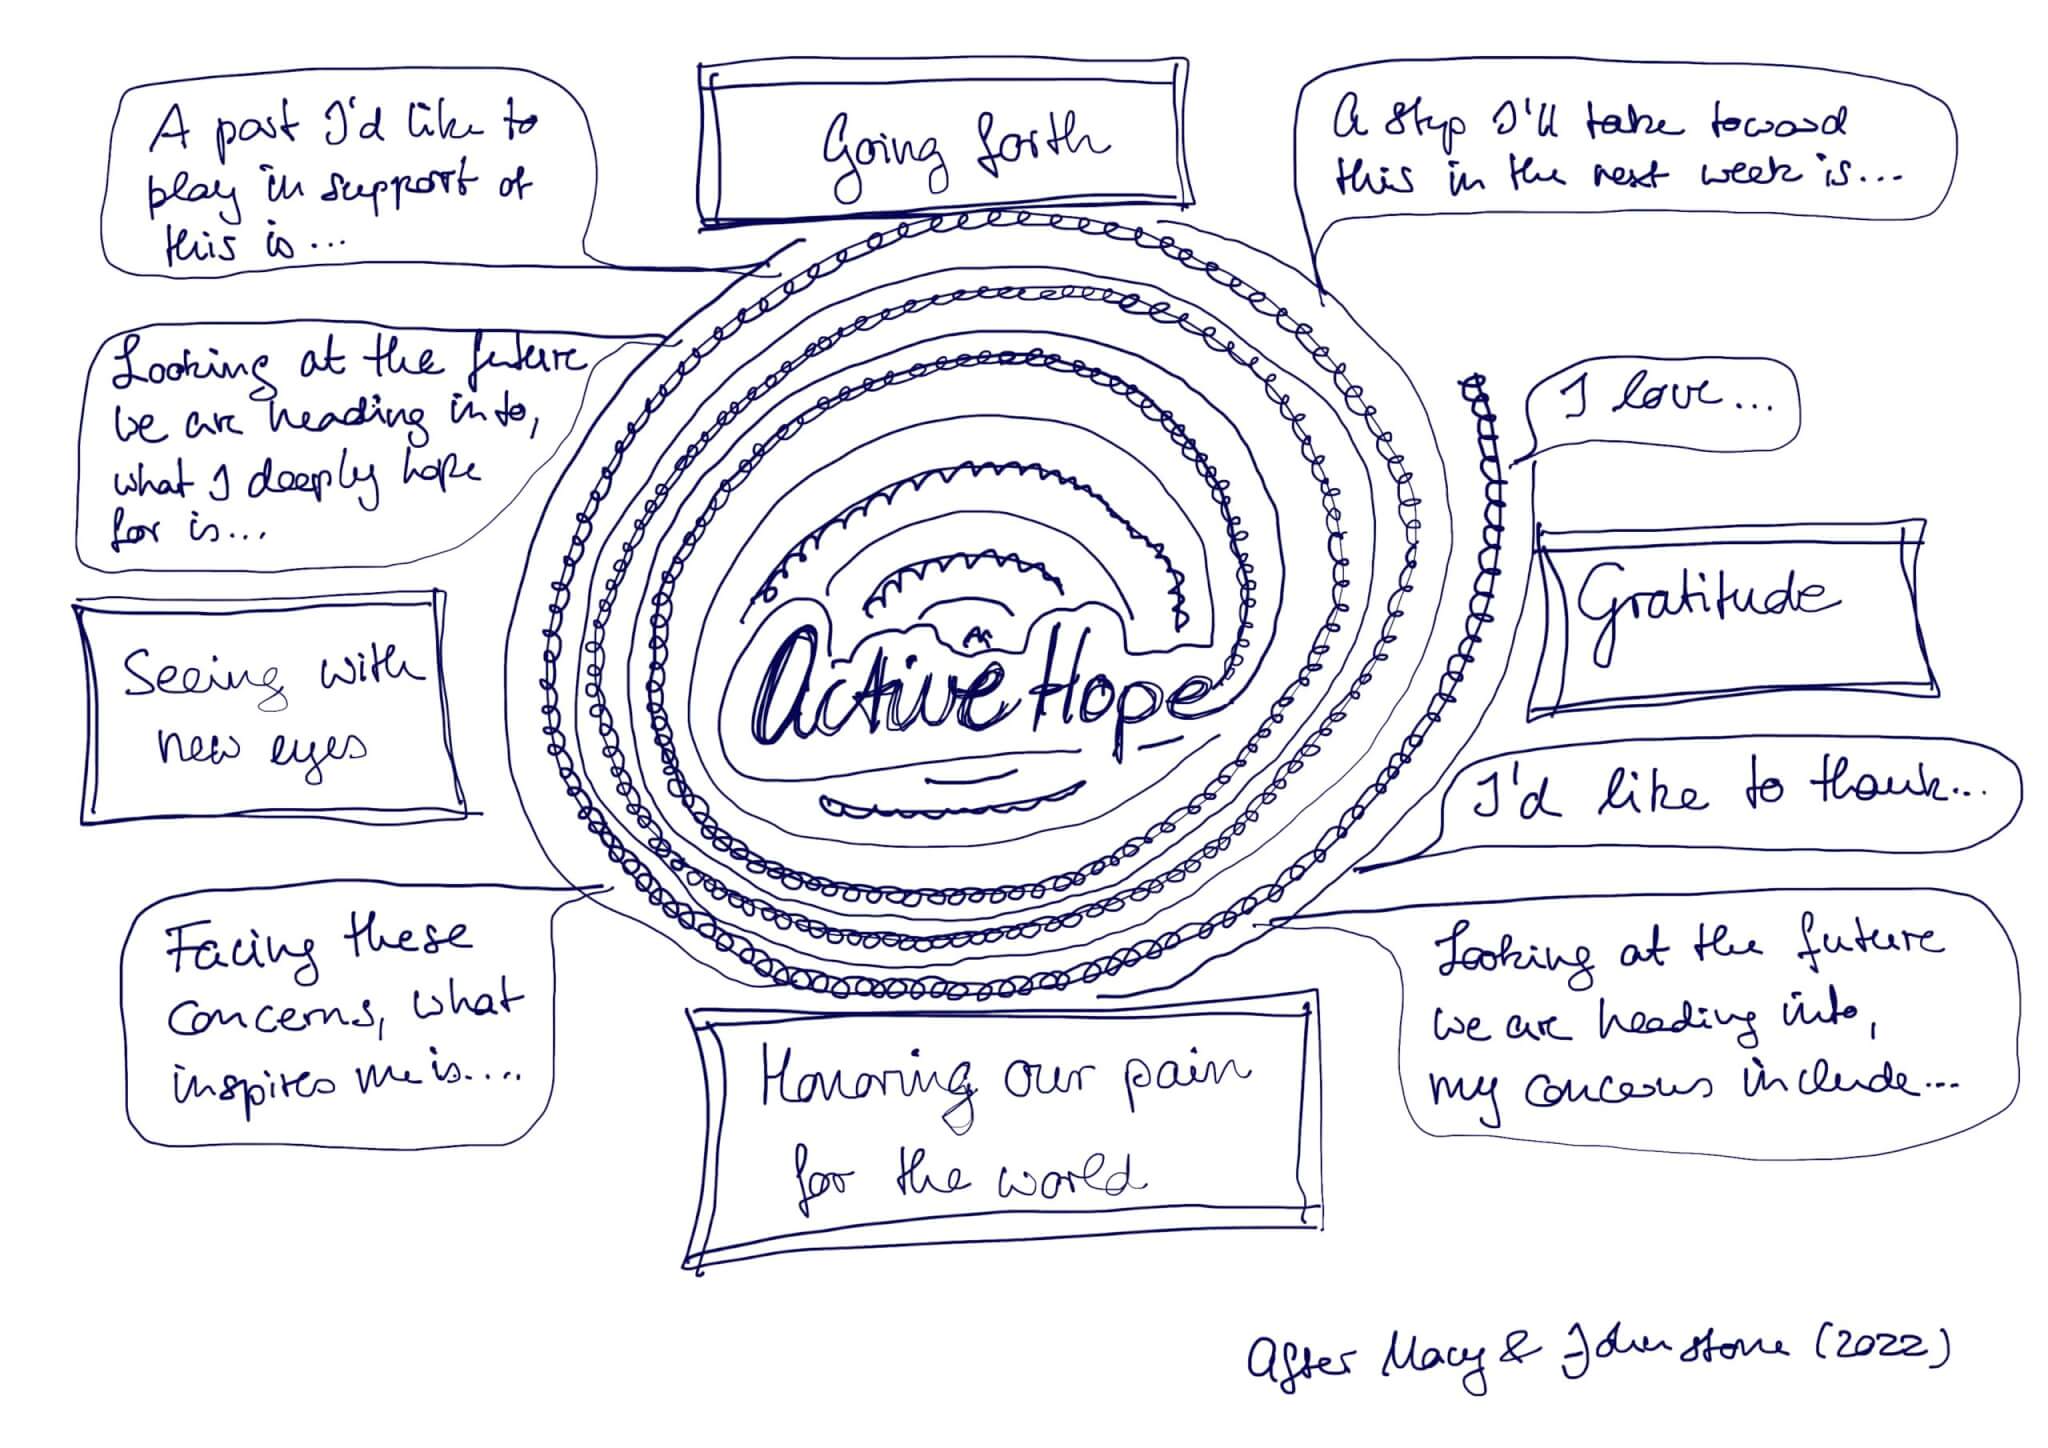 A part I'd like to
play in support of
this is...
Going forth
A step I'll take toward
this in the next week is...
Looking at the future
we are heading into,
what I deeply hope
for is...
I love...
Gratitude
Active Hope
Seeing with
new eyes
I'd like to thank...
Facing these
concerns, what
inspires me is....
Looking at the future
we are heading into,
my concerns include...
Honoring our pain
for the world
After Macy & Johnstone (2022)